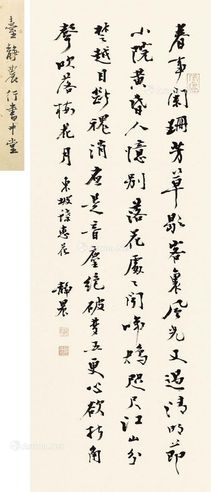 臺靜農行書中堂
春事闌珊芳草歇客裏風光又過清明節
小院黃昏人憶別落花處〻聞啼鴂咫尺江山分
楚越目斷魂消應是音塵絕破夢五更心欲折角
聲吹落梅花月 東坡蝶恋花 靜農